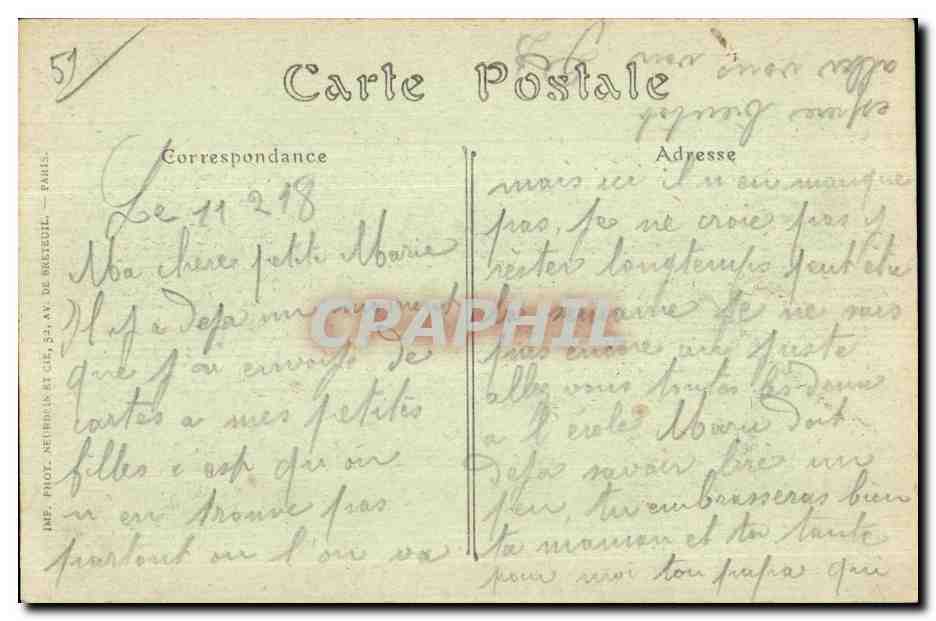 51
Carte Postale
Correspondance
Adresse
IMP. PHOT. NEURDEIN ET CIE, 52, AV. DE BRETEUIL. — PARIS.
CPARAPHIL
Le 11 2 18
Ma chère petite Marie
Il y a deja un moment
que j'ai envoyé de
cartes a mes petites
filles c'est qu'on
n'en trouve pas
partout ou l'on va
mais ici il n'en manque
pas, je ne croie pas y
rester longtemps peut être
la semaine je ne sais
pas encore au juste
allez vous toutes les deux
a l'école Marie doit
deja savoir lire un
peu, tu embrasseras bien
ta maman et ta tante
pour moi ton papa qui
espere bientot
aller vous voir